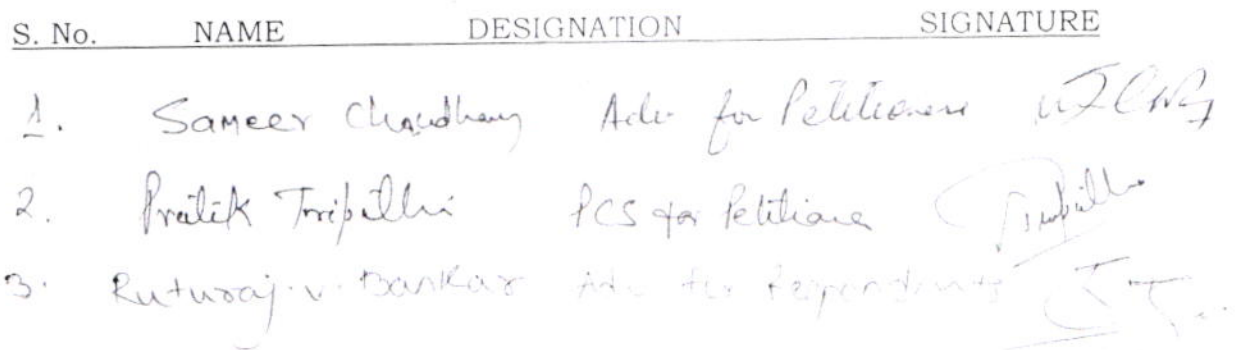 S. No. NAME DESIGNATION SIGNATURE
1. Sameer Choudhary Adv for Petitioners
2. Pratik Tripathi PCS for Petitioner
3. Ruturaj. v. Bankar Adv for Respondents